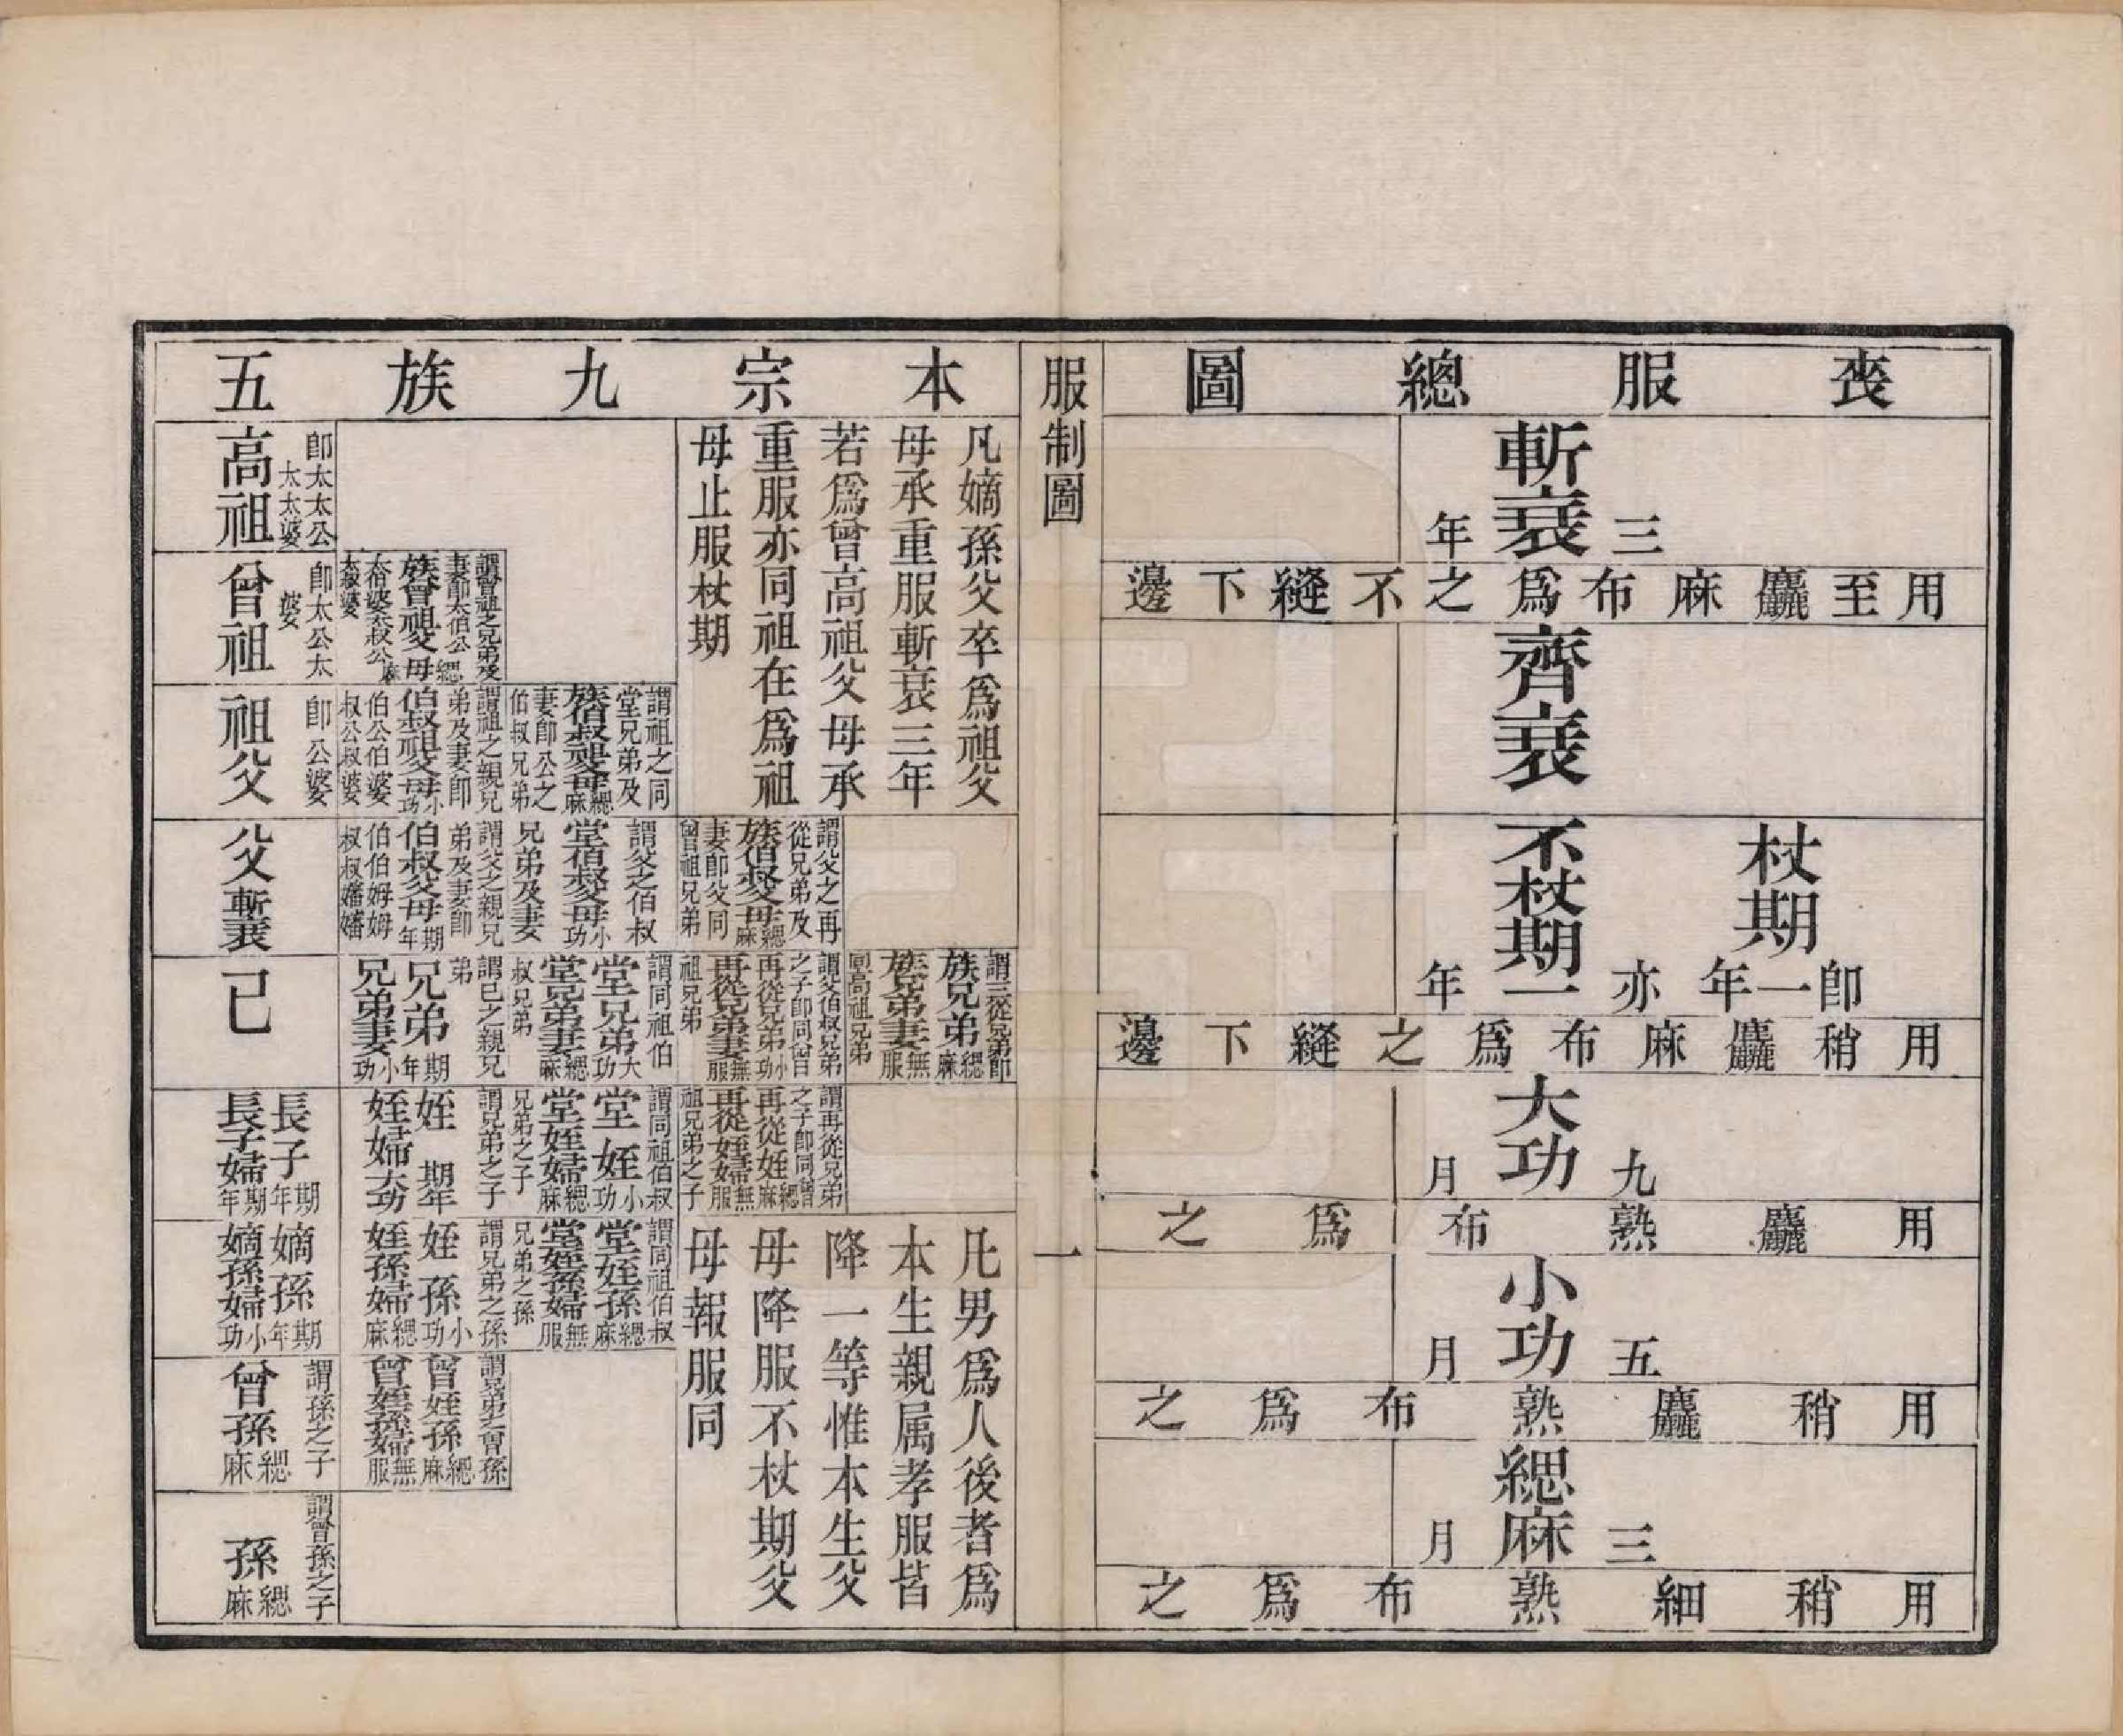 喪服總圖
斬衰三年
用至麤麻布爲之不縫下邊
齊衰
杖期即一年
不杖期亦一年
用稍麤麻布爲之縫下邊
大功九月
用麤熟布爲之
小功五月
用稍麤熟布爲之
緦麻三月
用稍細熟布爲之
服制圖
一
本宗九族五
凡嫡孫父卒爲祖父
母承重服斬衰三年
若爲曾高祖父母承
重服亦同祖在爲祖
母止服杖期
謂祖之同堂兄弟及
族伯叔祖父母緦麻
妻卽公之伯叔兄弟
謂父之再從兄弟及
族伯叔父母緦麻
妻卽父同曾祖兄弟
謂三從兄弟卽
族兄弟緦麻
族兄弟妻無服
同高祖兄弟
謂父伯叔兄弟之子卽同曾
再從兄弟小功
再從兄弟妻無服
祖兄弟
謂再從兄弟之子卽同曾
再從姪緦麻
再從姪婦無服
祖兄弟之子
凡男爲人後者爲
本生親属孝服皆
降一等惟本生父
母降服不杖期父
母報服同
謂父之伯叔
堂伯叔父母小功
兄弟及妻
謂同祖伯
堂兄弟大功
堂兄弟妻緦麻
叔兄弟
謂同祖伯叔
堂姪小功
堂姪婦緦麻
兄弟之子
謂同祖伯叔
堂姪孫緦麻
堂姪孫婦無服
兄弟之孫
謂曾祖之兄弟及妻卽太伯公
族曾祖父母緦麻
太伯婆太叔公太叔婆
謂祖之親兄弟及妻卽
伯叔祖父母小功
伯公伯婆叔公叔婆
謂父之親兄弟及妻卽
伯叔父母期年
伯伯姆姆叔叔嬸嬸
謂己之親兄弟
兄弟期年
兄弟妻小功
謂兄弟之子
姪期年
姪婦大功
謂兄弟之孫
姪孫小功
姪孫婦緦麻
謂兄弟之曾孫
曾姪孫緦麻
曾姪孫婦無服
卽太太公太太婆
高祖
卽太公太婆
曾祖
卽公婆
祖父
父斬衰
己
長子期年
長子婦期年
嫡孫期年
嫡孫婦小功
謂孫之子
曾孫緦麻
謂曾孫之子
孫緦麻